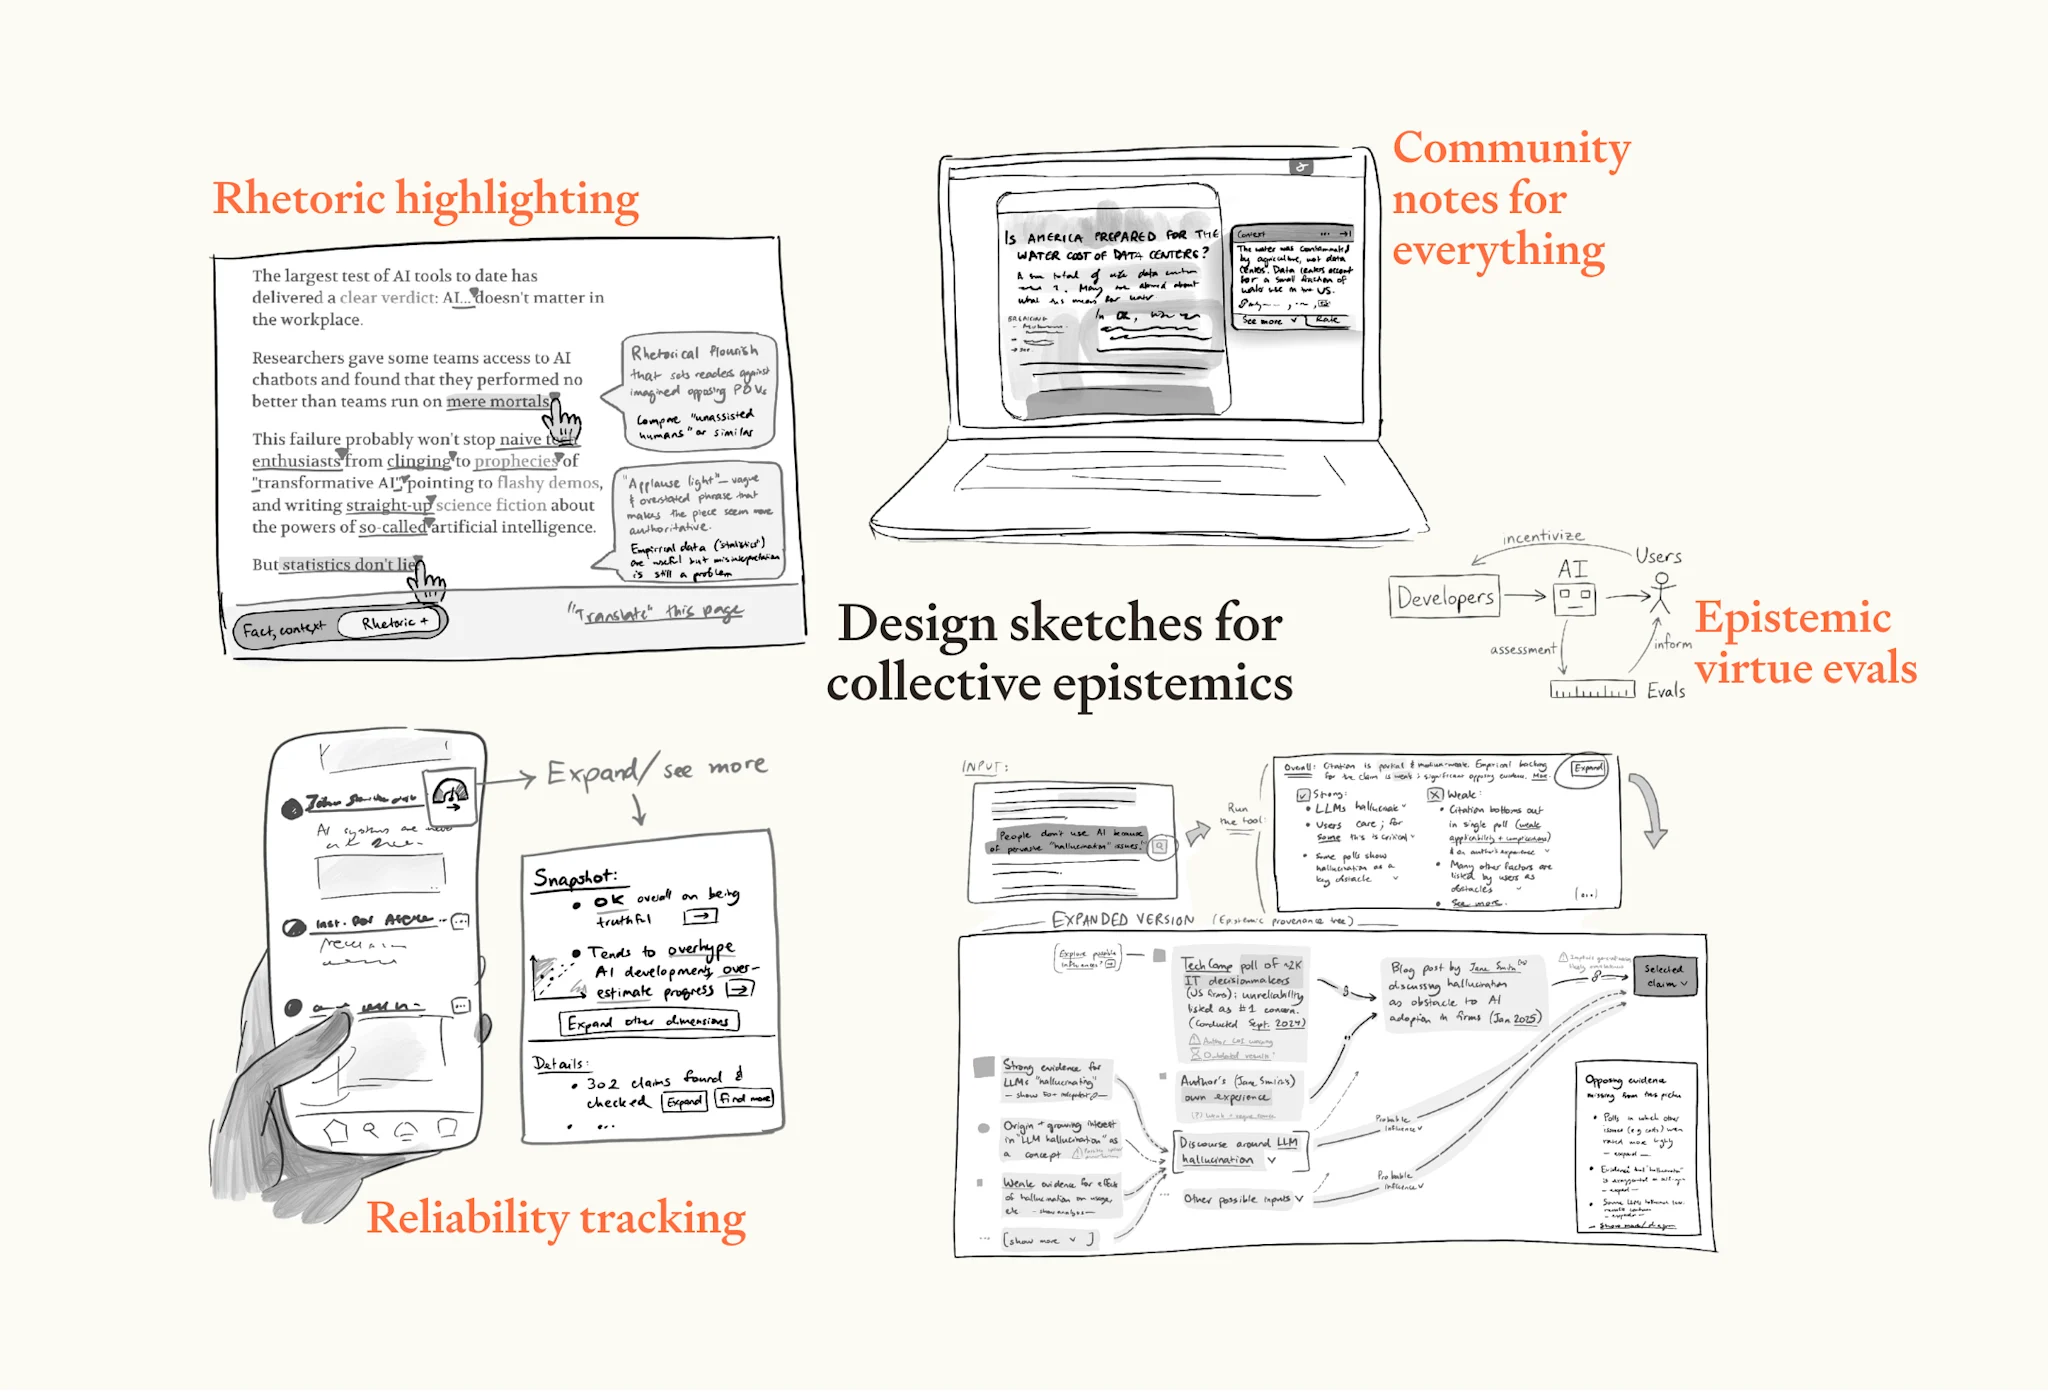 Rhetoric highlighting
The largest test of AI tools to date has
delivered a clear verdict: AI... doesn't matter in
the workplace.
Researchers gave some teams access to AI
chatbots and found that they performed no
better than teams run on mere mortals
This failure probably won't stop naive tech
enthusiasts from clinging to prophecies of
"transformative AI", pointing to flashy demos,
and writing straight-up science fiction about
the powers of so-called artificial intelligence.
But statistics don't lie
Rhetorical flourish
that sets readers against
imagined opposing POVs
Compare "unassisted
humans" or similar
"Applause light" — vague
& overstated phrase that
makes the piece seem more
authoritative.
Empirical data ("statistics")
are useful but misinterpretation
is still a problem
Fact, context
Rhetoric +
"Translate" this page
Community
notes for
everything
IS AMERICA PREPARED FOR THE
WATER COST OF DATA CENTERS?
BREAKING
Context
The water was contaminated
by agriculture, not data
centers. Data centers account
for a small fraction of
water use in the US.
See more
Rate
Design sketches for
collective epistemics
incentivize
Users
AI
Developers
assessment
inform
Evals
Epistemic
virtue evals
Expand/see more
AI systems are
Snapshot:
OK overall on being
truthful
Tends to overhype
AI developments, over-
estimate progress
Expand other dimensions
Details:
302 claims found &
checked
Expand
Find more
...
Reliability tracking
INPUT:
People don't use AI because
of pervasive "hallucination" issues."
Run
the tool:
Overall: Citation is partial & medium-weak. Empirical backing
for the claim is weak; significant opposing evidence. More.
Expand
Strong:
LLMs hallucinate
Users care; for
some this is critical
Some polls show
hallucination as a
key obstacle
Weak:
Citation bottoms out
in single poll (weak
applicability + implications)
& on author's experience
Many other factors are
listed by users as
obstacles
See more.
(...)
EXPANDED VERSION (Epistemic provenance tree)
Explore possible
influences?
TechComp poll of ~2K
IT decisionmakers
(US firms): unreliability
listed as #1 concern.
(Conducted Sept. 2024)
Outdated version
Author's (Jane Smith's)
own experience
Blog post by Jane Smith
discussing hallucination
as obstacle to AI
adoption in firms (Jan 2025)
Selected
claim
Strong evidence for
LLMs "hallucinating"
Origin + growing interest
in "LLM hallucination" as
a concept
Weak evidence for effects
of hallucination on usage,
etc - show analysis -
[show more ]
Discourse around LLM
hallucination
Other possible inputs
Probable
influence
Probable
influence
Opposing evidence
missing from this picture
Polls in which other
issues (e.g. costs) were
rated more highly
- expand -